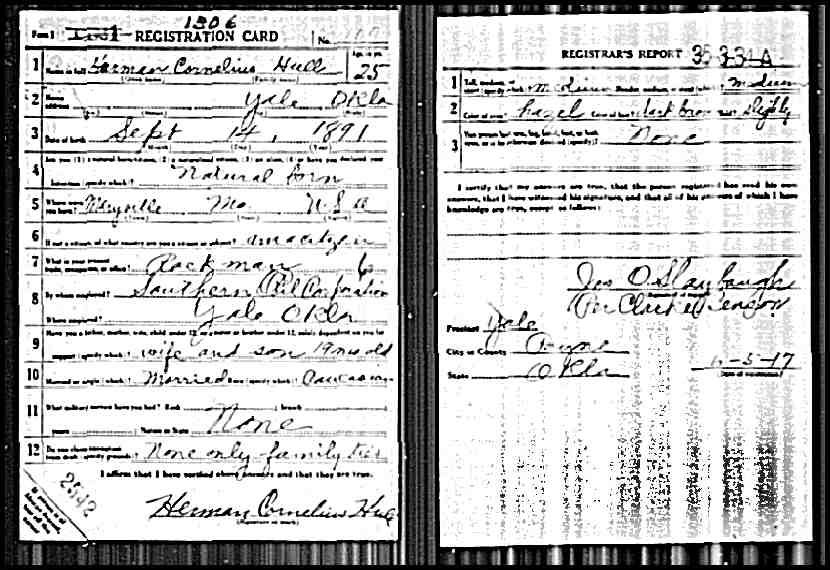 1306
Form 1 REGISTRATION CARD No.
1 Name in full Herman Cornelius Hull Age, in yrs. 25
2 Home address Yale Okla
3 Date of birth Sept 14, 1891
4 Are you (1) a natural born citizen, (2) a naturalized citizen, (3) an alien, (4) or have you declared your
intention (specify which)? Natural Born
5 Where were you born? Mo. U S A
6 If not a citizen, of what country are you a citizen or subject? am a citizen
7 What is your present trade, occupation, or office?
8 By whom employed? Southern Oil Corporation
Where employed? Yale Okla
9 Have you a father, mother, wife, child under 12, or a sister or brother under 12, solely dependent on you for
support (specify which)? wife and son 19 mos old
10 Married or single (which)? Married Race (specify which)? Caucasian
11 What military service have you had? Rank branch
years Nation or State None
12 Do you claim exemption from draft (specify grounds)? None only family ties
I affirm that I have verified above answers and that they are true.
2542
Herman Cornelius Hull
(Signature or mark)
REGISTRAR'S REPORT 35-3-34-A
1 Tall, medium, or short (specify which)? medium Slender, medium, or stout (which)? medium
2 Color of eyes? hazel Color of hair? dark brown Bald? Slightly
3 Has person lost arm, leg, hand, foot, or both eyes, or is he otherwise disabled (specify)? None
I certify that my answers are true, that the person registered has read his own
answers, that I have witnessed his signature, and that all of his answers of which I have
knowledge are true, except as follows:
Jas O Slaybaugh
(Signature of registrar)
Per
Precinct Yale
City or County Payne
State Okla 6-5-17
(Date of registration)